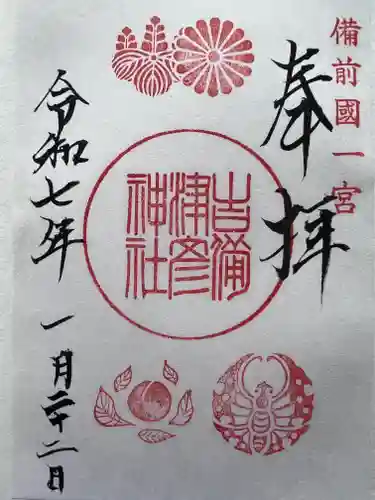 備前國一宮
奉拝
吉備
津彦
神社
令和七年
一月二十二日